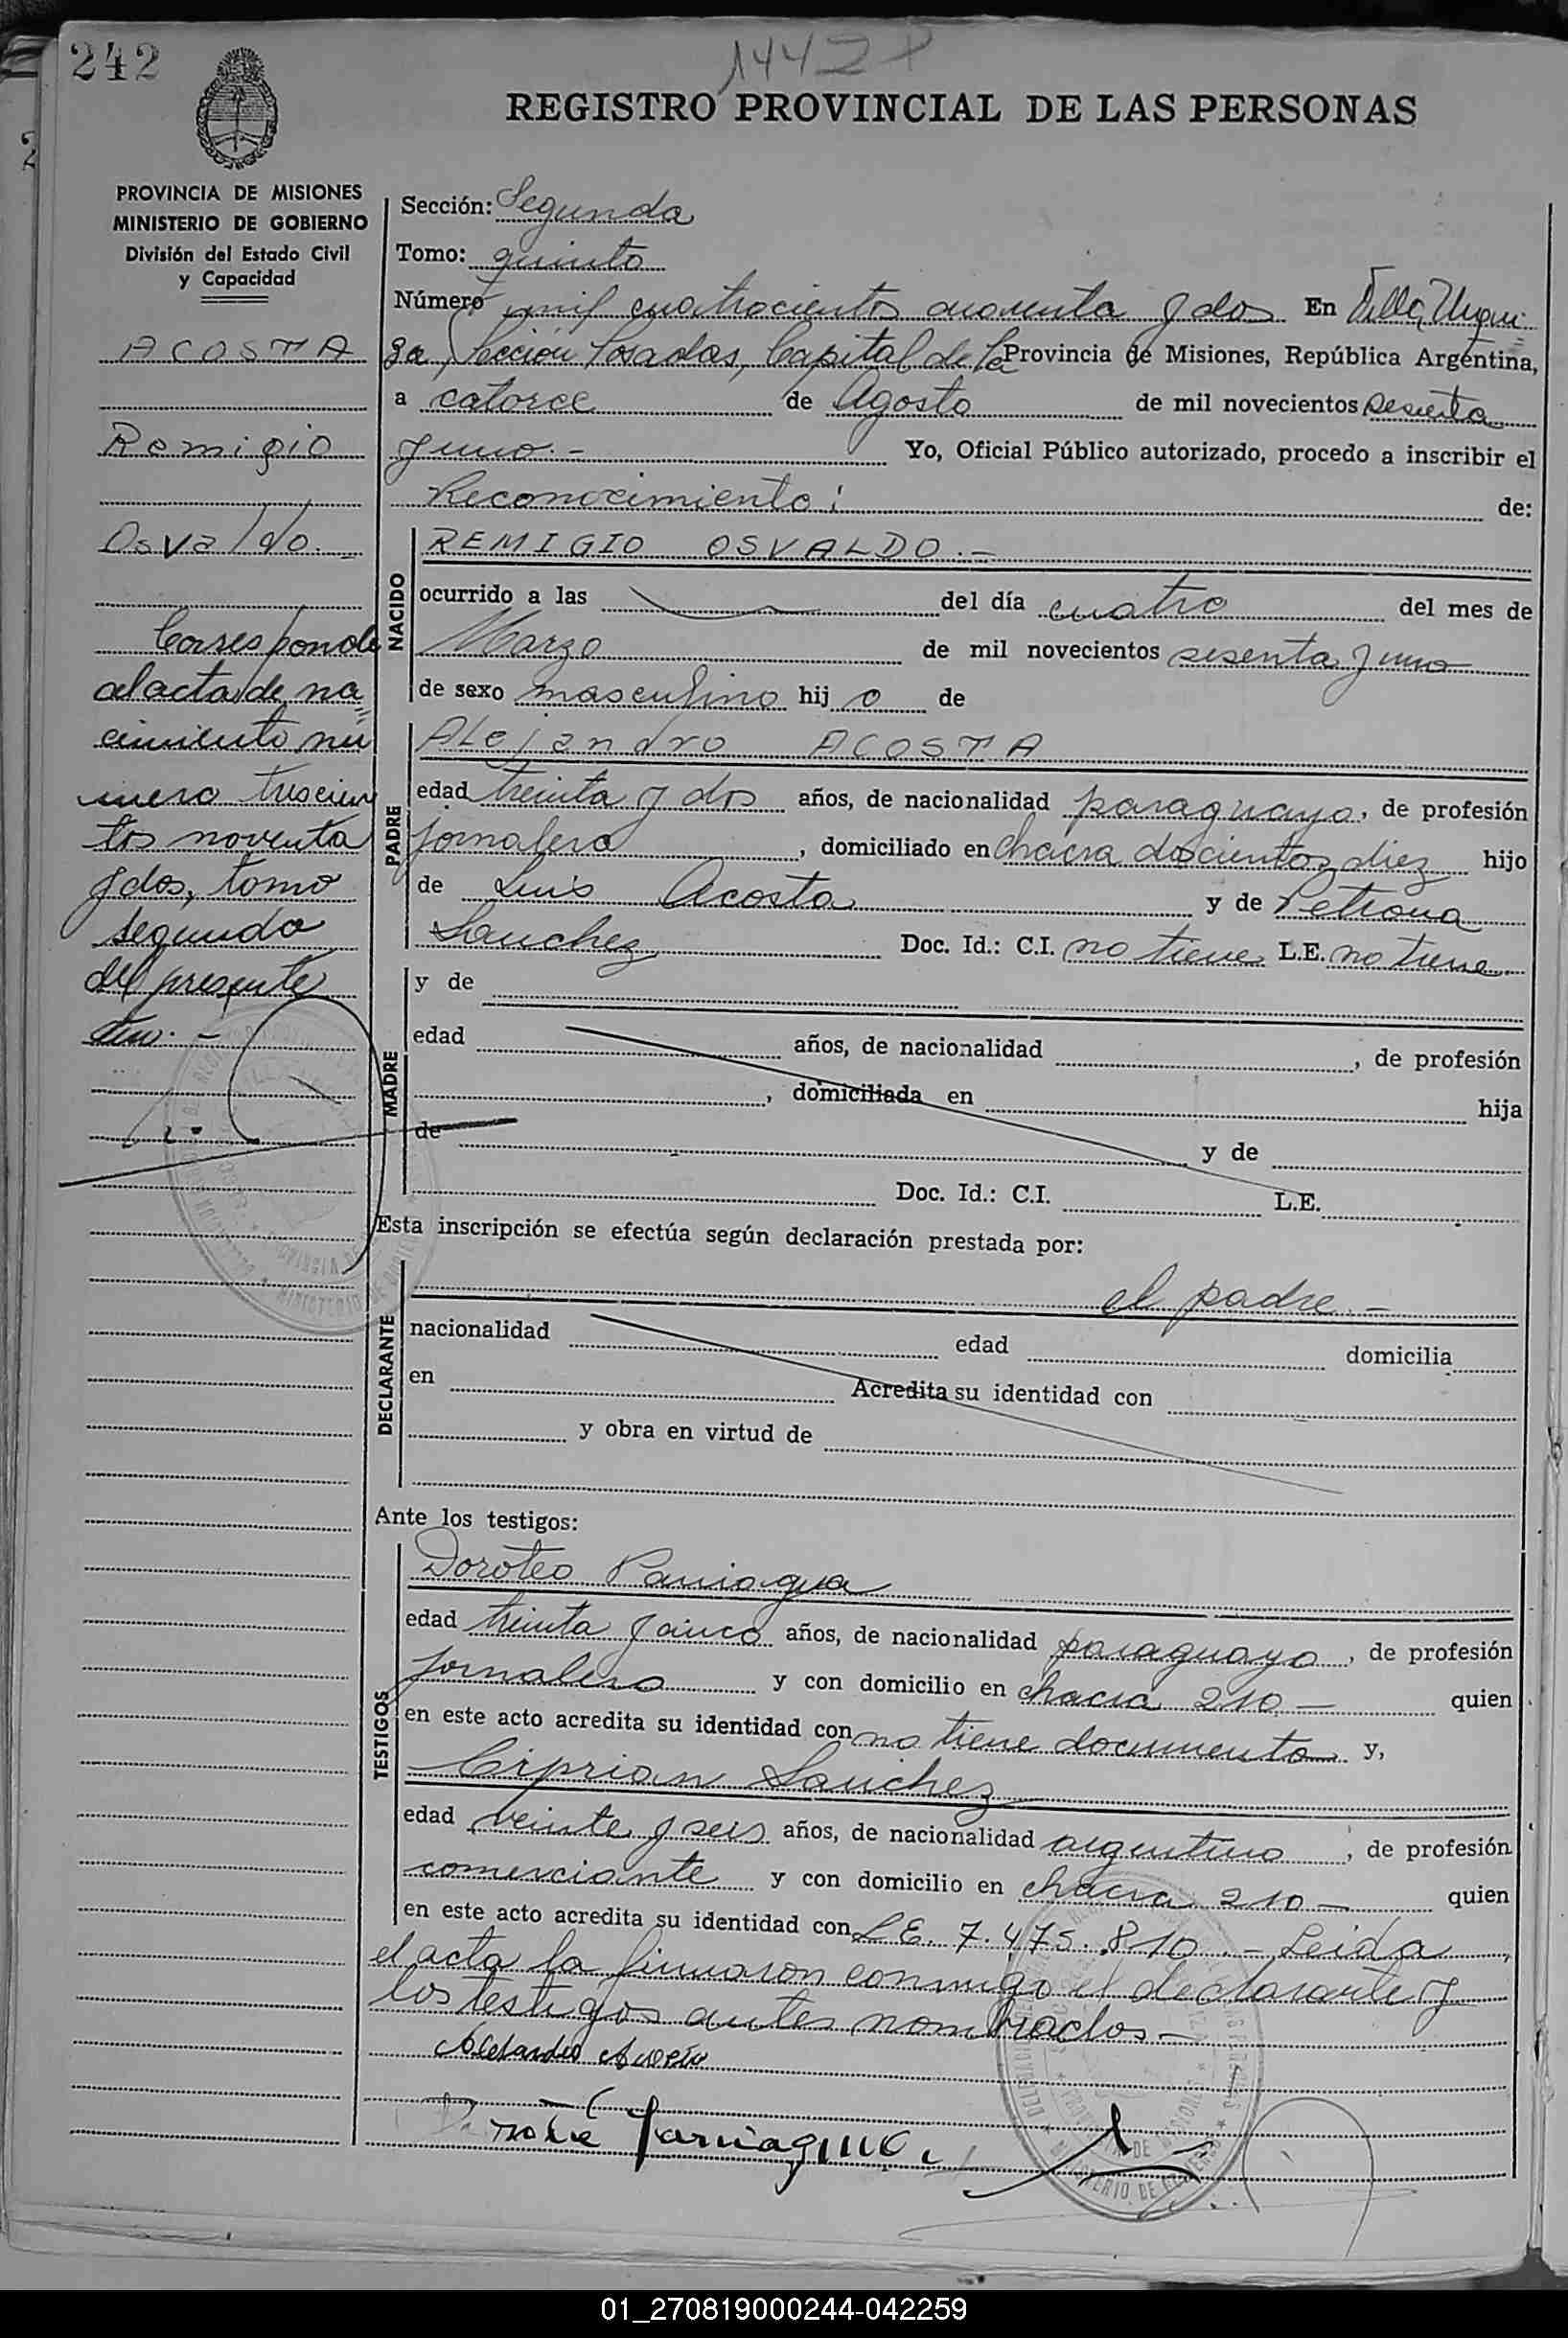 242
1442 P
REGISTRO PROVINCIAL DE LAS PERSONAS
PROVINCIA DE MISIONES
MINISTERIO DE GOBIERNO
División del Estado Civil
y Capacidad
ACOSTA
Remigio
Osvaldo.-
Corresponde
al acta de na=
cimiento nú
mero trescien
tos noventa
y dos, tomo
segundo
del presente
Sección: Segunda
Tomo: quinto
Número mil cuatrocientos cuarenta y dos En Villa Urqui=
za, Sección Posadas, Capital de la Provincia de Misiones, República Argentina,
a catorce de Agosto de mil novecientos sesenta
y uno.- Yo, Oficial Público autorizado, procedo a inscribir el
Reconocimiento: de:
NACIDO
REMIGIO OSVALDO.-
ocurrido a las del día cuatro del mes de
Marzo de mil novecientos sesenta y uno
de sexo masculino hijo de
PADRE
Alejandro ACOSTA
edad treinta y dos años, de nacionalidad paraguaya, de profesión
jornalero, domiciliado en chacra doscientos diez hijo
de Luis Acosta y de Petrona
Sanchez Doc. Id.: C.I. no tiene L.E. no tiene
MADRE
y de
edad años, de nacionalidad , de profesión
, domiciliada en hija
de y de
Doc. Id.: C.I. L.E.
Esta inscripción se efectúa según declaración prestada por:
DECLARANTE
el padre.-
nacionalidad edad domicilia
en Acredita su identidad con
y obra en virtud de
Ante los testigos:
TESTIGOS
Doroteo Paniagua
edad treinta y cinco años, de nacionalidad paraguayo, de profesión
jornalero y con domicilio en chacra 210 - quien
en este acto acredita su identidad con no tiene documento y,
Ciprian Sanchez
edad veinte y seis años, de nacionalidad argentino, de profesión
comerciante y con domicilio en chacra 210 - quien
en este acto acredita su identidad con L.E. 7.475.810.- Leida
el acta la firmaron conmigo el declarante y
los testigos antes nombrados.-
MINISTERIO DE GOBIERNO
01_270819000244-042259